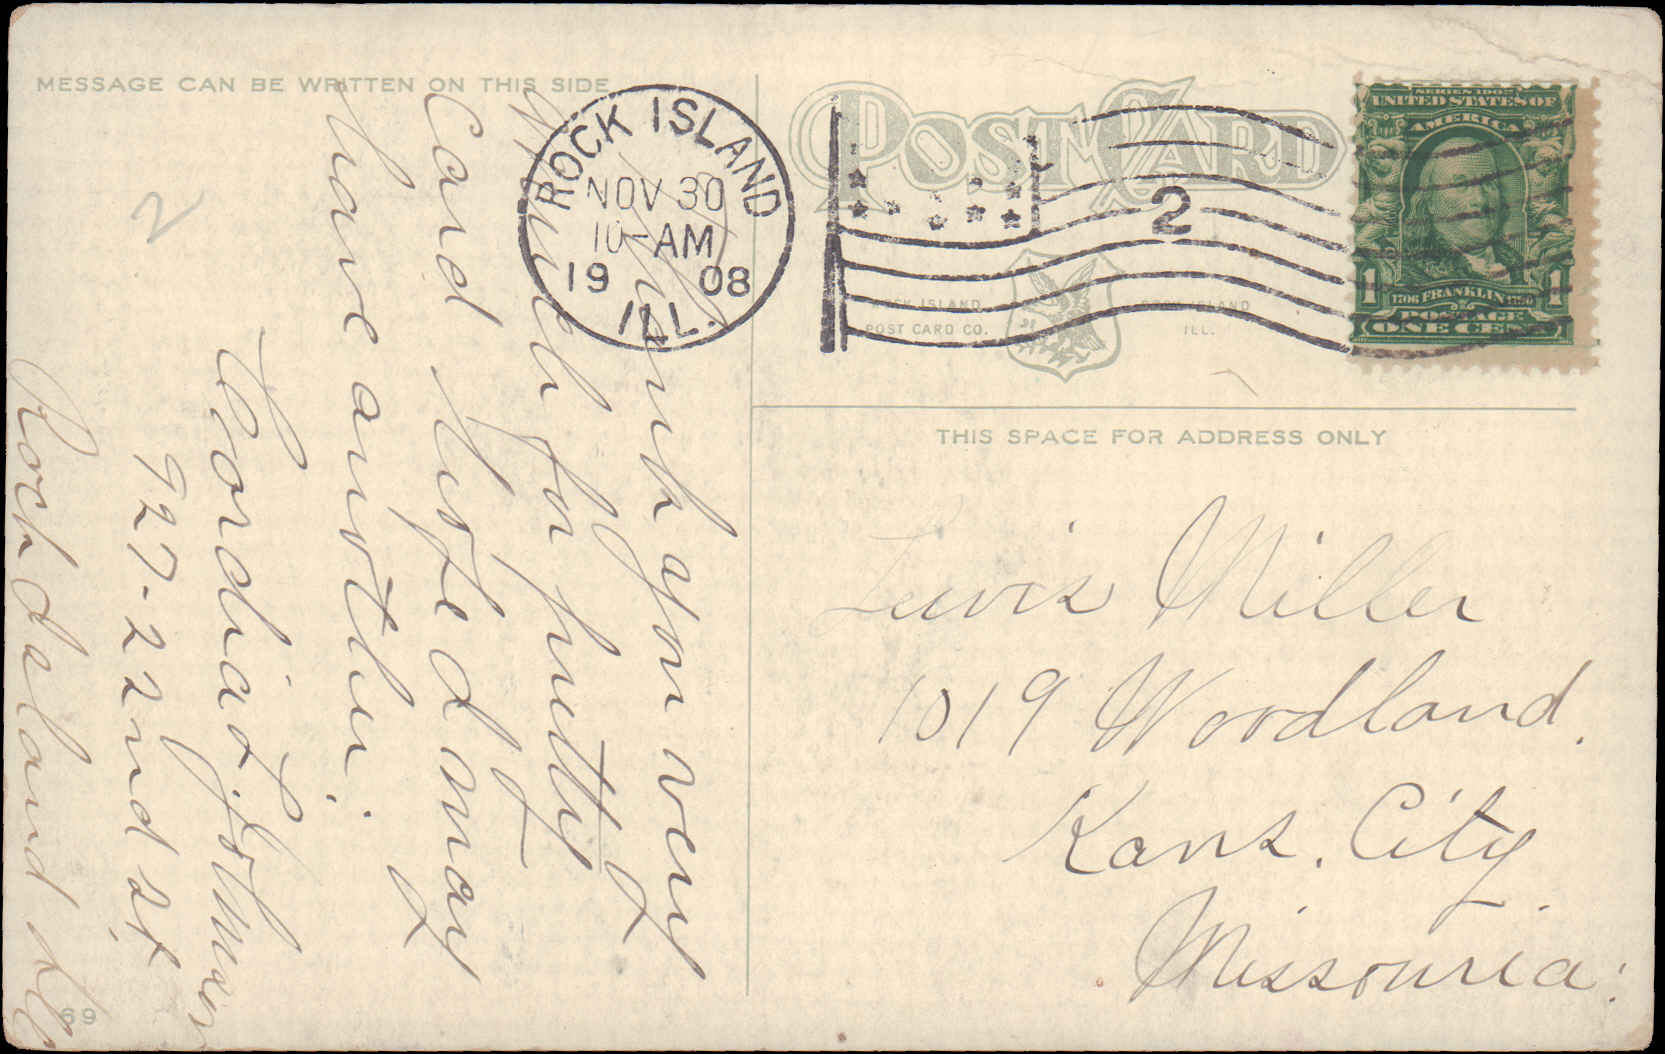 MESSAGE CAN BE WRITTEN ON THIS SIDE
POST CARD
ROCK ISLAND
NOV 30
10-AM
1908
ILL.
2
SERIES 1902
UNITED STATES OF
AMERICA
1706 FRANKLIN 1790
POSTAGE
ONE CENT
1 1
ROCK ISLAND
POST CARD CO.
ROCK ISLAND
ILL.
THIS SPACE FOR ADDRESS ONLY
Lewis Miller
1019 Woodland.
Kans. City
Missouria.
Thank you very
Much for pretty
Card hope I may
have another.
Cordia
927-22nd st.
Rock Island Ill
2
69